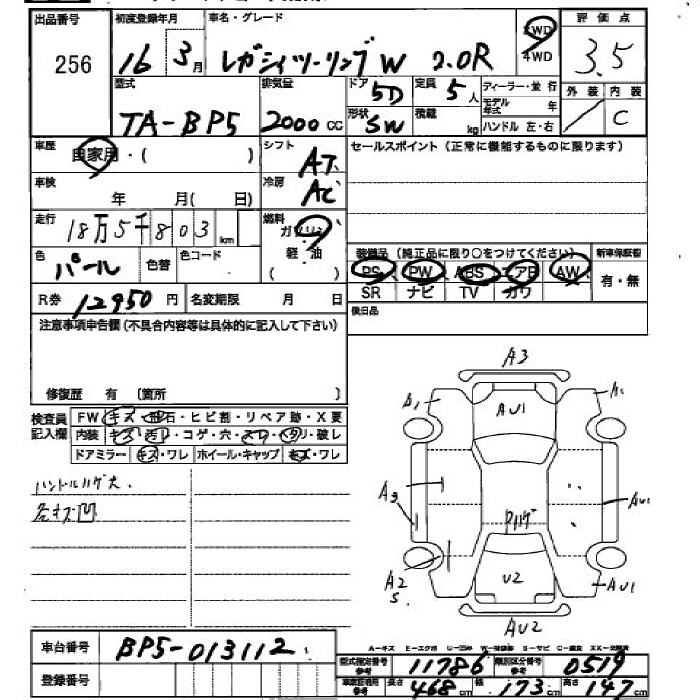 出品番号 初度登録年月 車名・グレード 評価点
256 16 3月 レガシィツーリングW 2.0R 2WD 4WD 3.5
型式 排気量 ドア 5D 定員 5人 ディーラー・並行 外装 内装
TA-BP5 2000cc 形状 SW 積載 kg モデル年式 年 / C
ハンドル 左・右
車歴 自家用・( ) シフト AT セールスポイント(正常に機能するものに限ります)
車検 年 月(日) 冷房 AC
走行 18万5千803km 燃料 ガソリン
色 パール 色替 色コード 軽・油 ( ) 装備品(純正品に限り○をつけてください) 新車保証書
PS PW ABS エアB AW 有・無
R券 12950円 名変期限 月 日 SR ナビ TV カワ
注意事項申告欄(不具合内容等は具体的に記入して下さい) 後日品
修復歴 有〔箇所 〕
検査員記入欄 FW キズ・飛石・ヒビ割・リペア跡・X要
内装 キズ・汚レ・コゲ・穴・スレ・ヘタリ・破レ
ドアミラー キズ・ワレ ホイール・キャップ キズ・ワレ
ハンドルハゲ大.
各キズ凹
A3
A1 AU1 A1
A3 AU1
Rハゲ
A2 S U2 AU1
AU2
A-キズ E-エクボ U-凹み W-補修跡 S-サビ C-腐食 XX-交換済
車台番号 BP5-013112 型式指定番号参考 11786 類別区分番号参考 0519
登録番号 車検証明用参考 長さ 468cm 幅 173cm 高さ 147cm